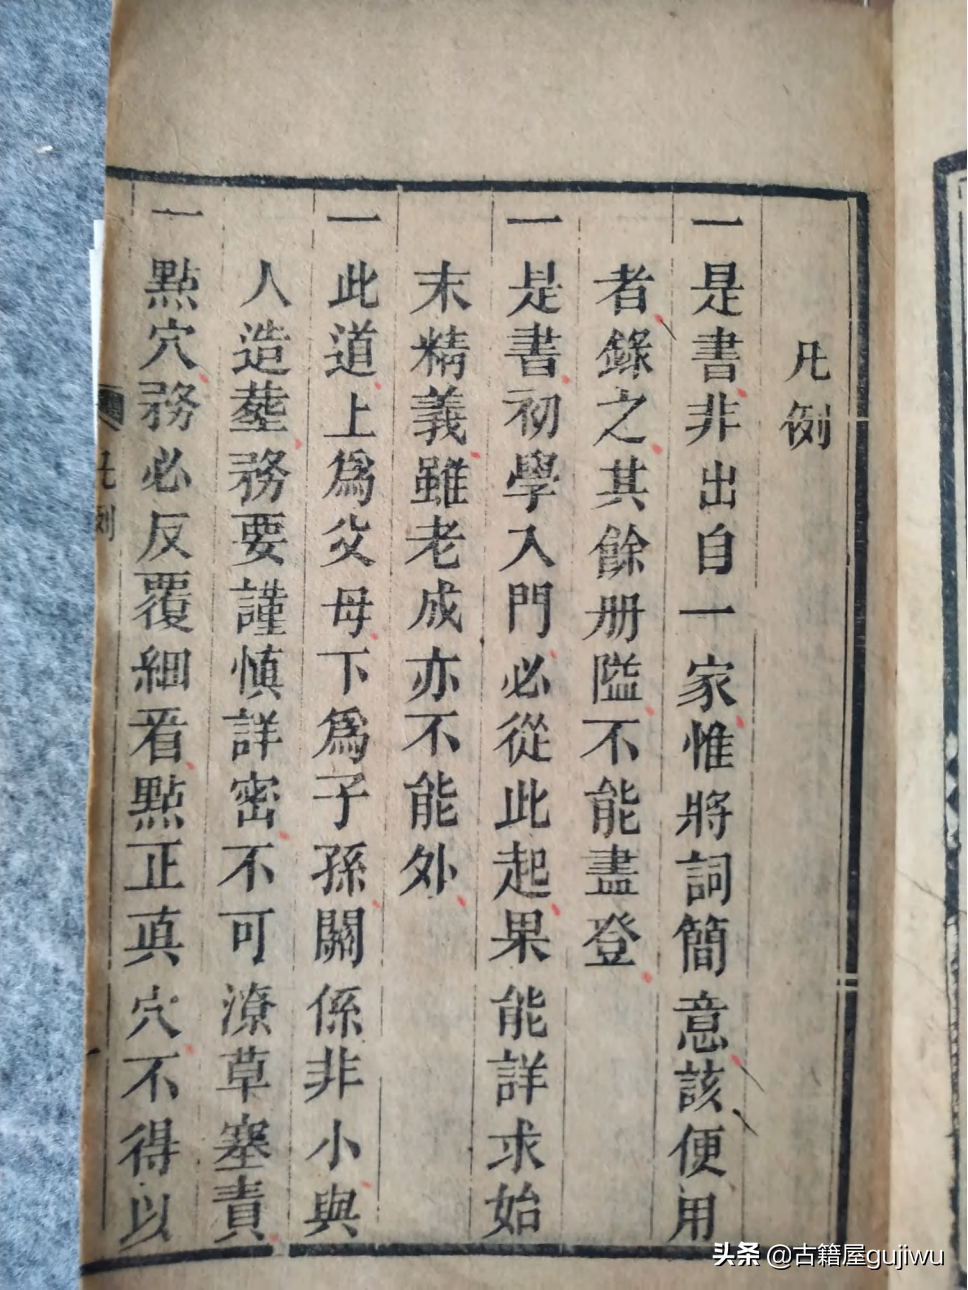 凡例
一是書非出自一家惟將詞簡意該便用
者錄之其餘册隘不能盡登
一是書初學入門必從此起果能詳求始
末精義雖老成亦不能外
一此道上爲父母下爲子孫關係非小與
人造塟務要謹慎詳密不可潦草塞責
一點穴務必反覆細看點正真穴不得以
凡例
头条 @古籍屋gujiwu